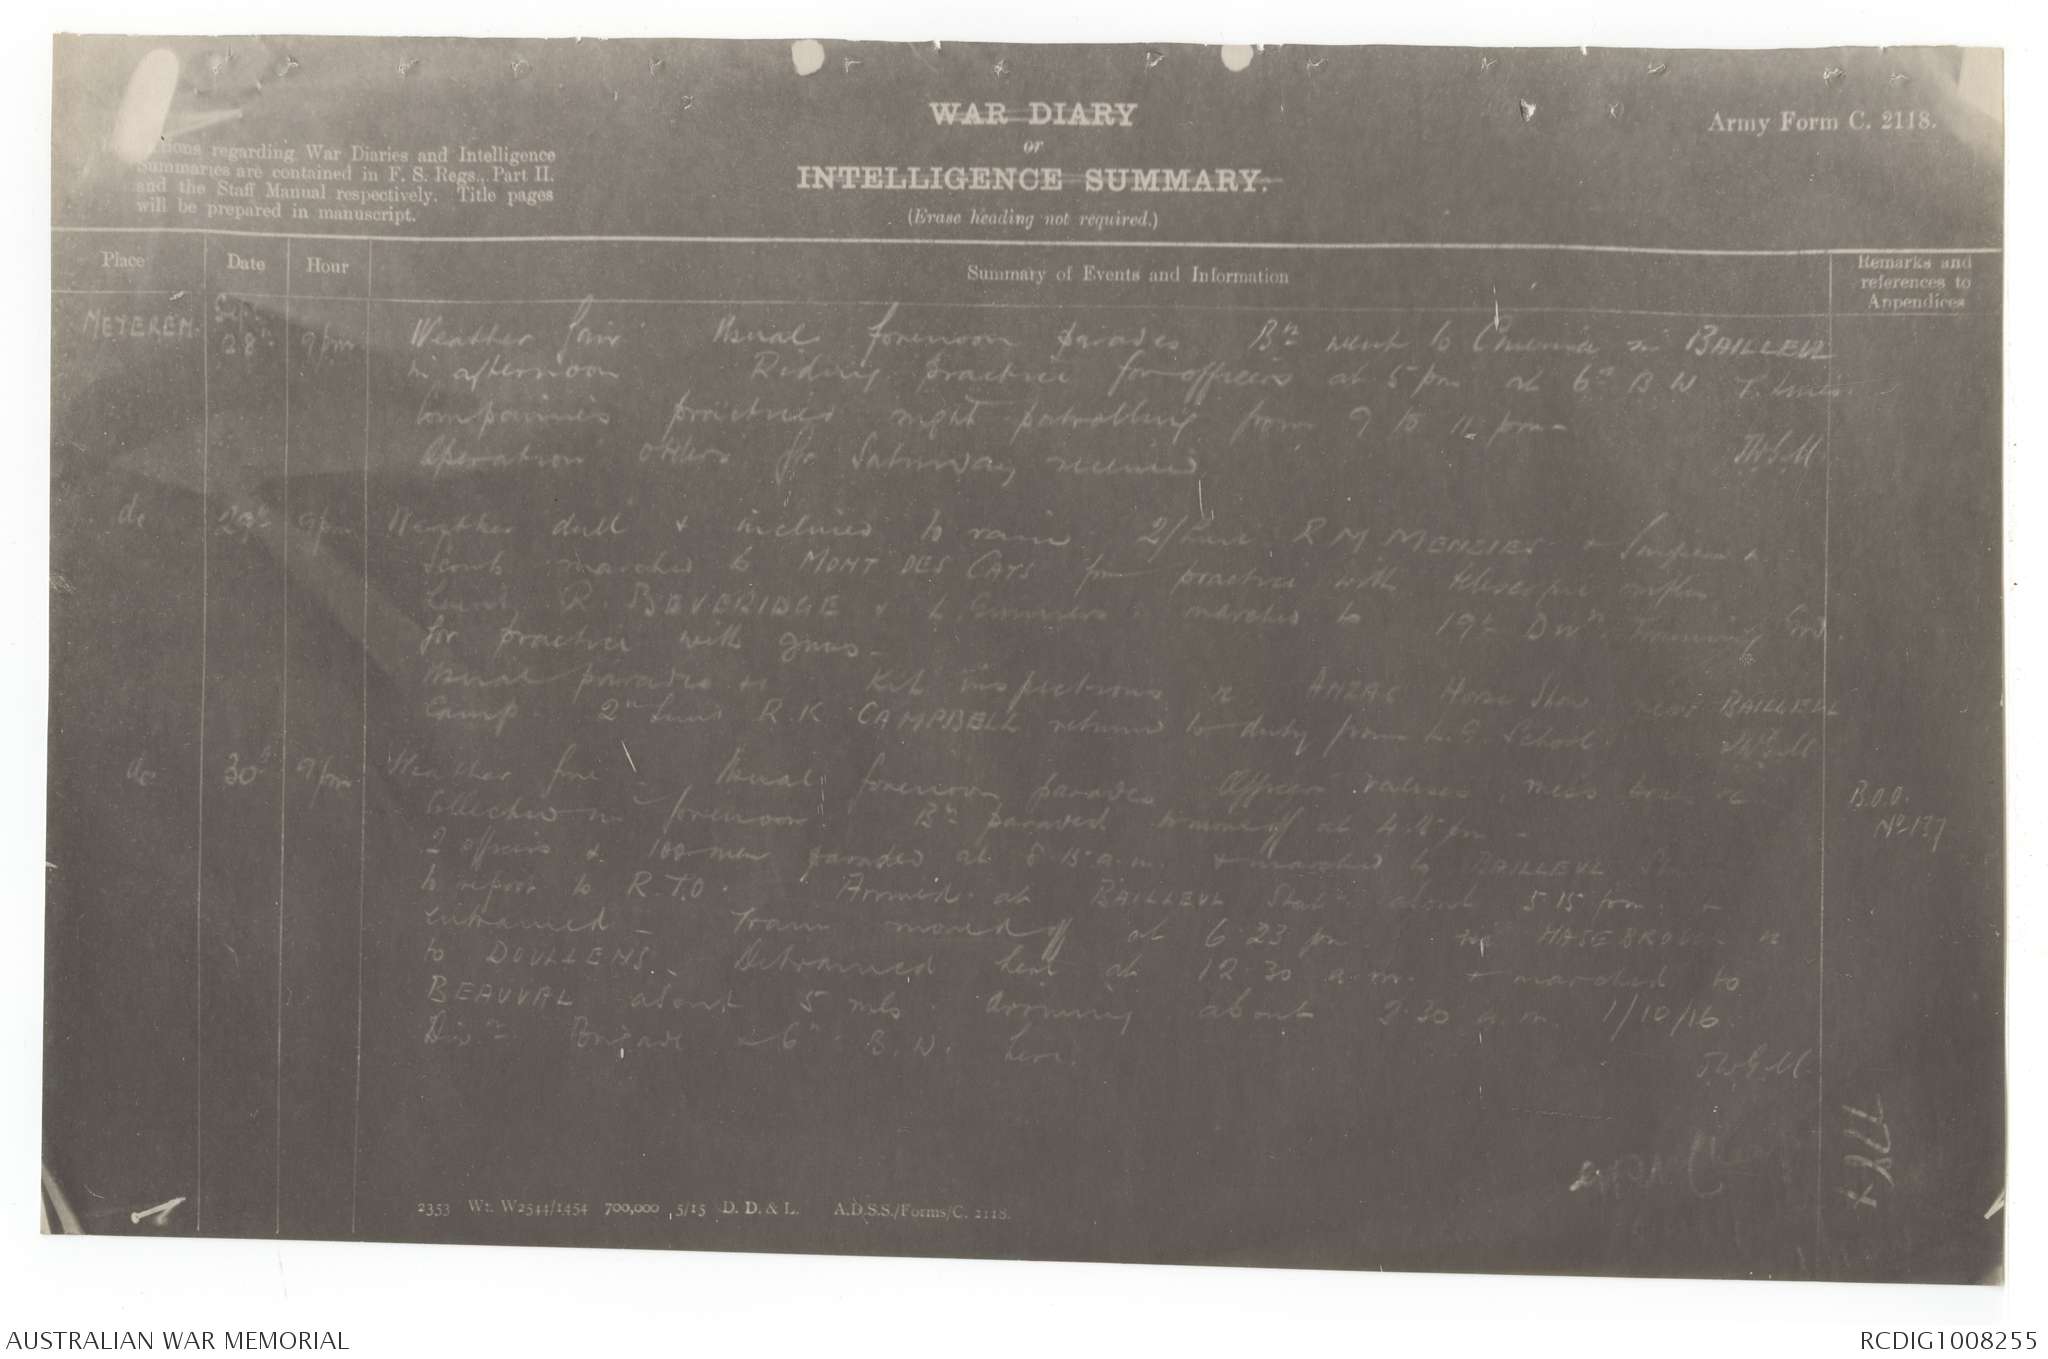 WAR DIARY
or
INTELLIGENCE SUMMARY.
(Erase heading not required.)
Army Form C. 2118.
regarding War Diaries and Intelligence
Summaries are contained in F. S. Regs., Part II.
and the Staff Manual respectively. Title pages
will be prepared in manuscript.
Place
Date
Hour
Summary of Events and Information
Remarks and
references to
Appendices
METEREN. Sept 28th 9pm Weather fair Usual forenoon parades Bn went to Cinema in BAILLEUL
in afternoon Riding practice for officers at 5 pm at 6th B W T. Lines.
Companies practised night patrolling from 9 to 11 pm -
Operation orders for Saturday received
do 29th 9pm Weather dull & inclined to rain. 2/Lieut R M MENZIES &
Scouts marched to MONT DES CATS for practice with telescopic rifles
Lieut R. BEVERIDGE & L. Gunners marched to 19th Divn Training Grd.
for practice with guns -
Usual parades Kit inspections ANZAC Horse Show near BAILLEUL
Camp. 2nd Lieut R.K. CAMPBELL returned to duty from L.G. School.
do 30th 9pm Weather fine - Usual forenoon parades Officers valises, mess boxes &c
Collected in forenoon Bn paraded to move off at 4. pm -
2 officers & 100 men paraded at 8.15 a.m. & marched to BAILLEUL
to report to R.T.O. Arrived at BAILLEUL Statn about 5.15 pm &
entrained - Train moved off at 6.23 pm
to DOULLENS. Detrained here at 12.30 a.m. & marched to
BEAUVAL about 5 mls arriving about 2.30 a.m. 1/10/16
Divn Brigade & 6th B.W. here.
B.O.O.
No. 137
2353 Wt. W2544/1454 700,000 5/15 D. D. & L. A.D.S.S./Forms/C. 2118.
AUSTRALIAN WAR MEMORIAL
RCDIG1008255